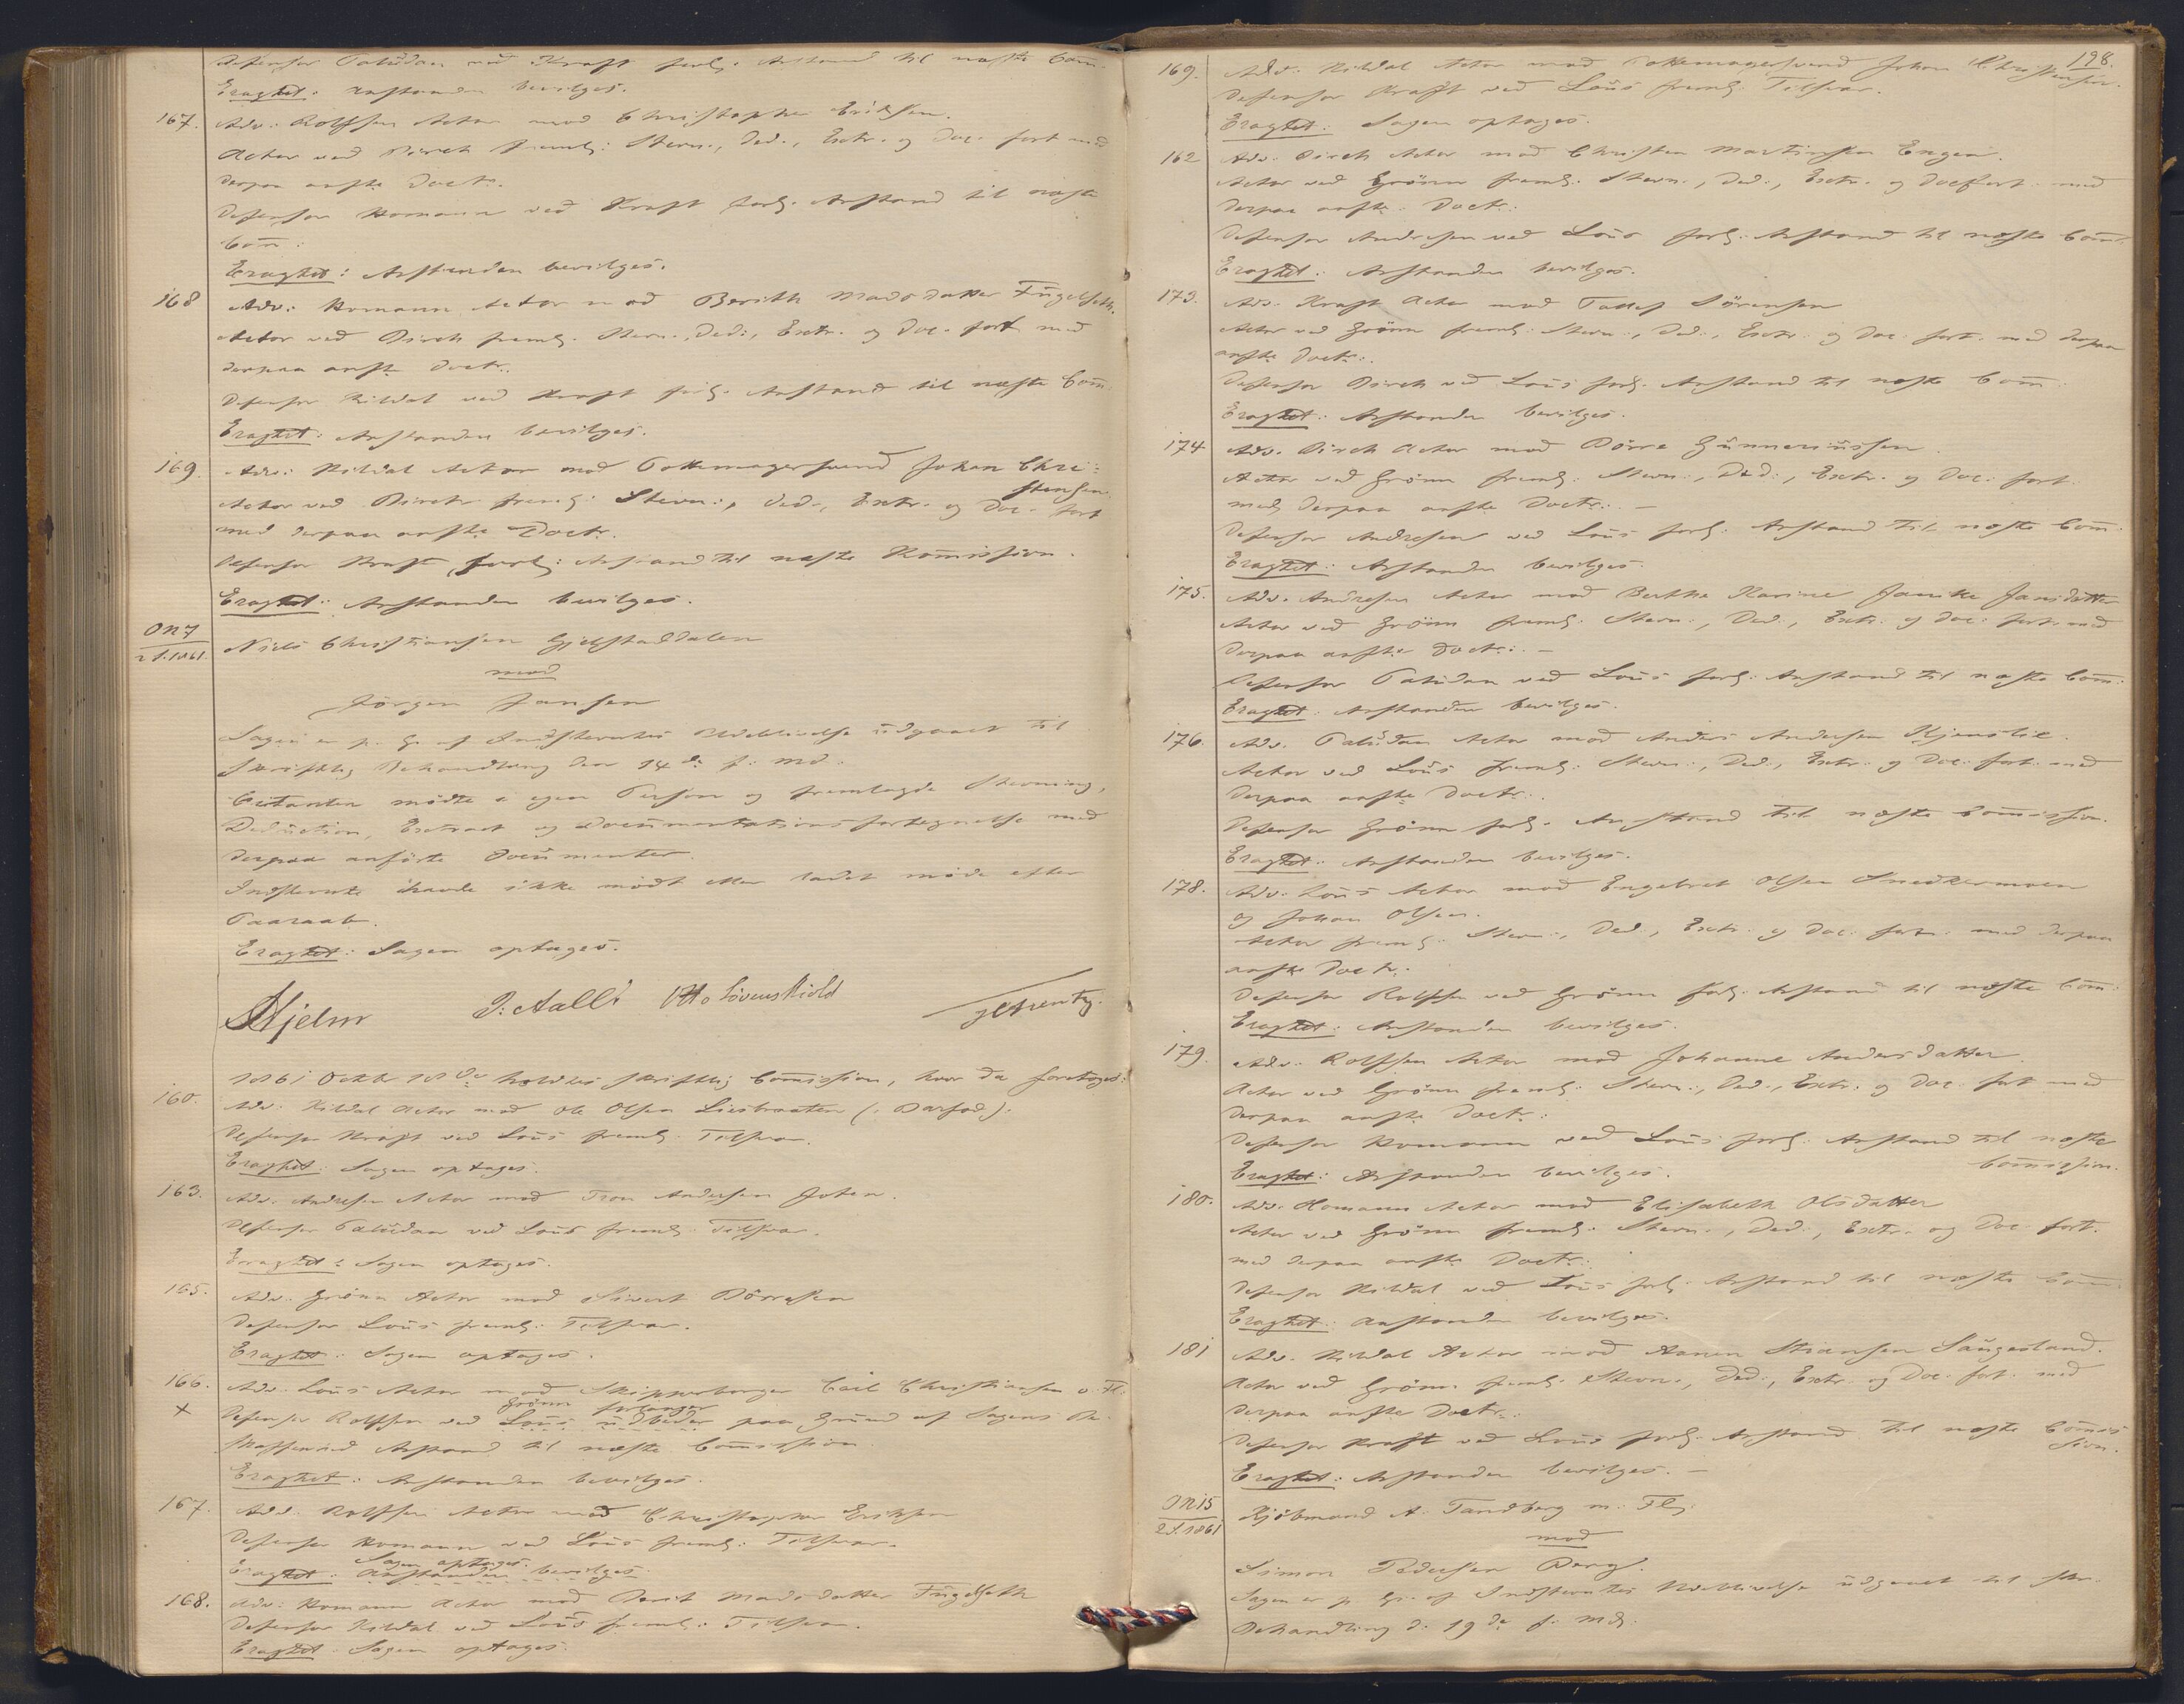 Defensor Paludan ved Kraft forl. Anstand til næste Com.
Eragtet: Anstanden bevilges.
167. Adv. Rolfsen Actor mod Christopher Eriksen.
Actor ved Birch freml: Stevn., Ded., Extr. og Doc. fort. med
derpaa anfte Doctr.
Defensor Homann ved Kraft forl. Anstand til næste
Com:
Eragtet: Anstanden bevilges.
168 Adv: Homann Actor mod Berith Madsdatter Fügelseth.
Actor ved Birch freml. Stevn., Ded:, Extr. og Doc. fort med
derpaa anfte Doctr.
Defensor Kildal ved Kraft forl. Anstand til næste Com.
Eragtet: Anstanden bevilges.
169. Adv: Kildal Actor mod Pottemagersvend Johan Chri=
stensen.
Actor ved Birch freml: Stevn:, Ded., Extr. og Doc. fort
med derpaa anfte Doctr.
Defensor Kraft forl: Anstand til næste Kommission.
Eragtet: Anstanden bevilges.
ON 7
2 S. 1861.
Niels Christiansen Gjelstaddalen
mod
Jörgen Jansen
Sagen er p. Gr. af Indstevntes Udeblivelse üdgaaet til
Skriftlig Behandling den 14de f. Md.
Citanten mödte i egen Person og fremlagde Stevning,
Deduction, Extract og Documentationsfortegnelse med
derpaa anförte Documenter.
Indstevnte havde ikke mödt eller ladet möde efter
Paaraab.
Eragtet: Sagen optages.
Hjelm J: Aall Otto Lövenskiold
1861 Octbr 18de holdtes skriftlig Commission, hvor da foretoges:
160. Adv. Kildal Actor mod Ole Olsen Liebraaten (: Barfod):
Defensor Kraft ved Loüs freml. Tilsvar.
Eragtet: Sagen optages.
163. Adv. Andresen Actor mod Tron Andersen Joten.
Defensor Paludan ved Loüs freml. Tilsvar.
Eragtet: Sagen optages.
165. Adv. Grönn Actor mod Sivert Börresen
Defensor Loüs freml: Tilsvar.
Eragtet: Sagen optages.
166. Adv. Loüs Actor mod Skipperborger Carl Christiansen o. Fl.
Grönn forlanger
x Defensor Rolfsen ved Loüs üdbeder paa Grund af Sagens Be-
skaffenhed Anstand til næste Commission
Eragtet: Anstanden bevilges.
167. Adv. Rolfsen Actor mod Christopher Eriksen
Defensor Homann ved Loüs freml: Tilsvar.
Sagen optages.
Eragtet: Anstanden bevilges
168. Adv: Homann Actor mod Berit Madsdatter Fügelseth
Defensor Kildal ved Loüs freml: Tilsvar.
Eragtet: Sagen optages.
198.
169. Adv: Kildal Actor mod Pottemagersvend Johan Christensen.
Defensor Kraft ved Loüs freml: Tilsvar.
Eragtet: Sagen optages.
162 Adv. Birch Actor mod Christen Martinsen Engen.
Actor ved Grönn freml: Stevn., Ded., Extr. og Doc fort. med
derpaa anfte. Doctr:
Defensor Andresen ved Loüs forl: Anstand til næste Com:
Eragtet: Anstanden bevilges.
173. Adv. Kraft Actor mod Tallef Sörensen
Actor ved Grönn freml: Stevn:, Ded:, Extr: og Doc: fort. med derpaa
anfte Doctr:.
Defensor Birch ved Loüs forl. Anstand til næste Com:
Eragtet: Anstanden bevilges.
174 Adv. Birch Actor mod Börre Günneriüssen.
Actor ved Grönn freml: Stevn:, Ded:, Extr. og Doc: fort.
med derpaa anfte Doctr:. –
Defensor Andresen ved Loüs forl: Anstand til næste Com:
Eragtet: Anstanden bevilges.
175. Adv. Andresen Actor mod Berthe Karine Janike Jansdatter
Actor ved Grönn freml: Stevn:, Ded., Extr. og Doc. fort. med
derpaa anfte Doctr:. –
Defensor Paludan ved Loüs forl: Anstand til næste Com:
Eragtet: Anstanden bevilges.
176. Adv. Paludan Actor mod Anders Andersen Kjenslie.
Actor ved Loüs freml: Stevn:, Ded., Extr: og Doc: fort. med
derpaa anfte Doctr:.
Defensor Grönn forl. Anstand til næste Commission.
Eragtet: Anstanden bevilges.
178. Adv. Loüs Actor mod Engebret Olsen Snedkermoen
og Johan Olsen.
Actor freml: Stevn:, Ded, Extr: og Doc: fort: med derpaa
anfte Doctr:.
Defensor Rolfsen ved Grönn forl: Anstand til næste Com:
Eragtet: Anstanden bevilges.
179. Adv. Rolfsen Actor mod Johanne Andersdatter.
Actor ved Grönn freml: Stevn:, Ded., Extr: og Doc: fort med
derpaa anfte Doctr:
Defensor Homann ved Loüs forl: Anstand til næste
Commission.
Eragtet: Anstanden bevilges.
180. Adv. Homann Actor mod Elisabeth Olsdatter
Actor ved Grönn freml: Stevn., Ded:, Extr. og Doc fort.
med derpaa anfte Doctr:.
Defensor Kildal ved Loüs forl: Anstand til næste Com:
Eragtet: Anstanden bevilges.
181 Adv. Kildal Actor mod Aanen Stiansen Saügesland.
Actor ved Grönn freml. Stevn., Ded:, Extr. og Doc. fort. med
derpaa anfte Doctr:.
Defensor Kraft ved Loüs forl. Anstand til næste Commis
sion.
Eragtet: Anstanden bevilges. –
ON 15
2 S. 1861
Kjöbmand A. Tandberg m: Flg.
mod
Simon Pedersen Berg.
Sagen er p Gr. af Indstevntes Udeblivelse üdgaaet til skr.
Behandling d. 19de f. Md.